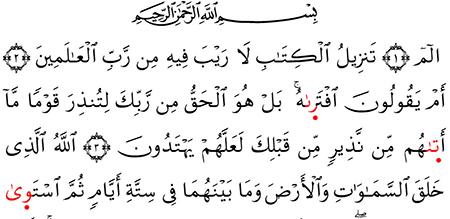 بِسْمِ ٱللَّهِ ٱلرَّحْمَٰنِ ٱلرَّحِيمِ
الٓمٓ ﴿١﴾ تَنزِيلُ ٱلْكِتَٰبِ لَا رَيْبَ فِيهِ مِن رَّبِّ ٱلْعَٰلَمِينَ ﴿٢﴾
أَمْ يَقُولُونَ ٱفْتَرىٰهُ ۚ بَلْ هُوَ ٱلْحَقُّ مِن رَّبِّكَ لِتُنذِرَ قَوْمًا مَّآ
أَتىٰهُم مِّن نَّذِيرٍ مِّن قَبْلِكَ لَعَلَّهُمْ يَهْتَدُونَ ﴿٣﴾ ٱللَّهُ ٱلَّذِى
خَلَقَ ٱلسَّمَٰوَٰتِ وَٱلْأَرْضَ وَمَا بَيْنَهُمَا فِى سِتَّةِ أَيَّامٍ ثُمَّ ٱسْتَوىٰ